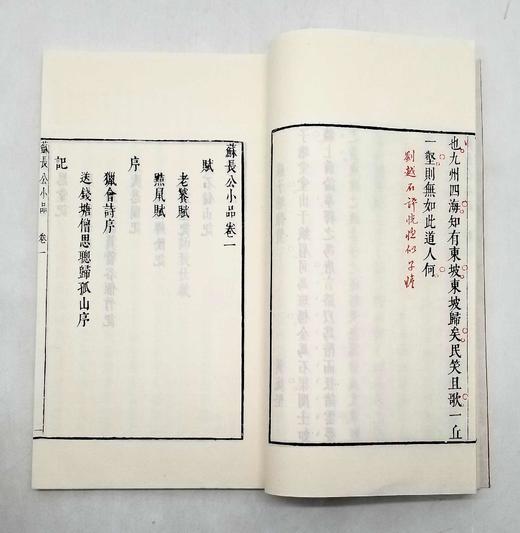 也九州四海知有東坡東坡歸矣民笑且歌一丘
一壑則無如此道人何
蘇長公小品卷一
賦
老饕賦
黠鼠賦
序
獵會詩序
送錢塘僧思聰歸孤山序
記
蘇長公小品 卷一